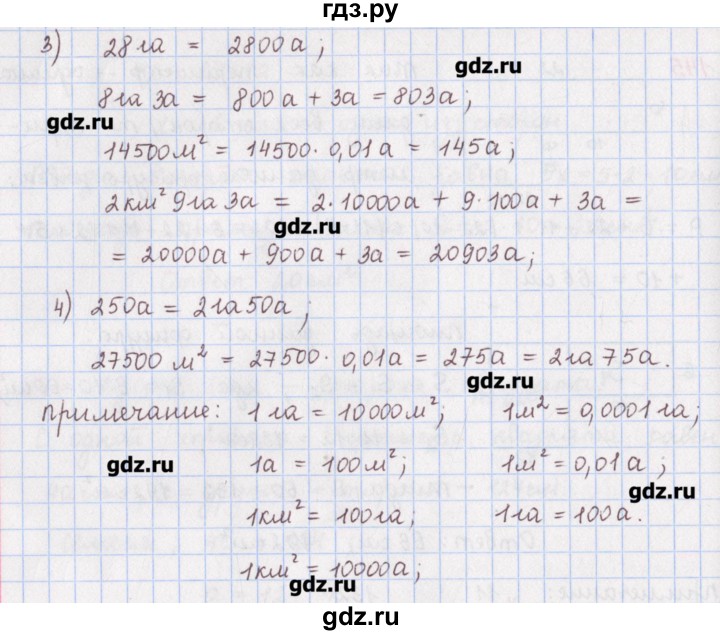 гдз.ру
3) 28 га = 2800 а;
gdz.ru
8 га 3 а = 800 а + 3 а = 803 а;
gdz.ru
14500 м² = 14500 · 0,01 а = 145 а;
2 км² 9 га 3 а = 2 · 10000 а + 9 · 100 а + 3 а =
gdz.ru
= 20000 а + 900 а + 3 а = 20903 а;
4) 250 а = 2 га 50 а;
27500 м² = 27500 · 0,01 а = 275 а = 2 га 75 а.
gdz.ru
примечание: 1 га = 10000 м²; 1 м² = 0,0001 га;
gdz.ru 1 а = 100 м²; 1 м² = 0,01 а;
gdz.ru
1 км² = 100 га; 1 га = 100 а.
1 км² = 10000 а;
gdz.ru
gdz.ru